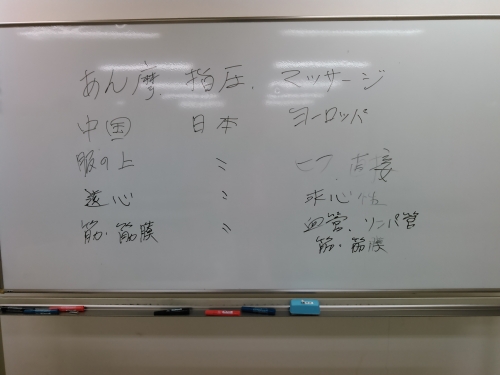 あん摩、指圧、マッサージ
中国 日本 ヨーロッパ
服の上 〃 ヒフ、直接
遠心 〃 求心性
筋・筋膜 〃 血管、リンパ管
筋・筋膜